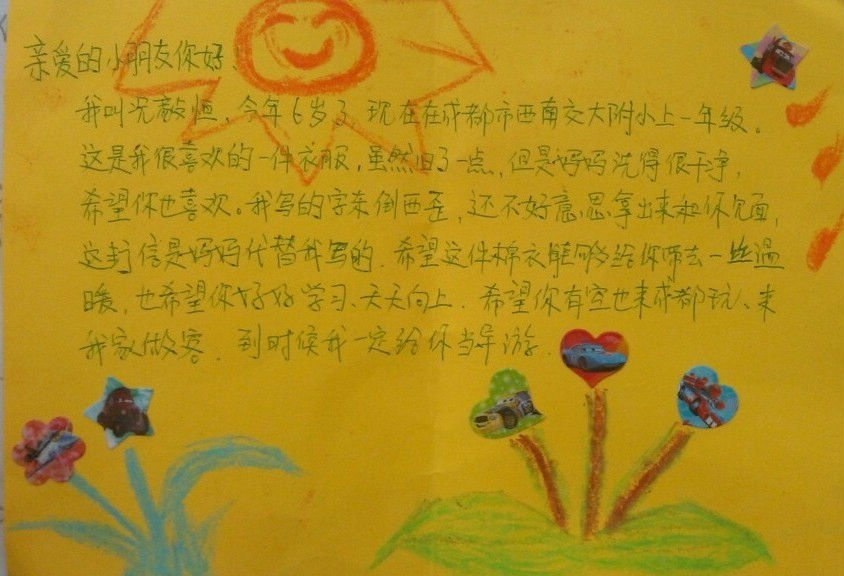 亲爱的小朋友你好、
我叫况敲恒，今年6岁了 现在在成都市西南交大附小上一年级。
这是我很喜欢的一件衣服，虽然旧了一点，但是妈妈洗得很干净，
希望你也喜欢。我写的字东倒西歪，还不好意思拿出来和你见面，
这封信是妈妈代替我写的．希望这件棉衣能够给你带去一丝温
暖，也希望你好好学习、天天向上．希望你有空也来成都玩、来
我家做客．到时候我一定给你当导游．